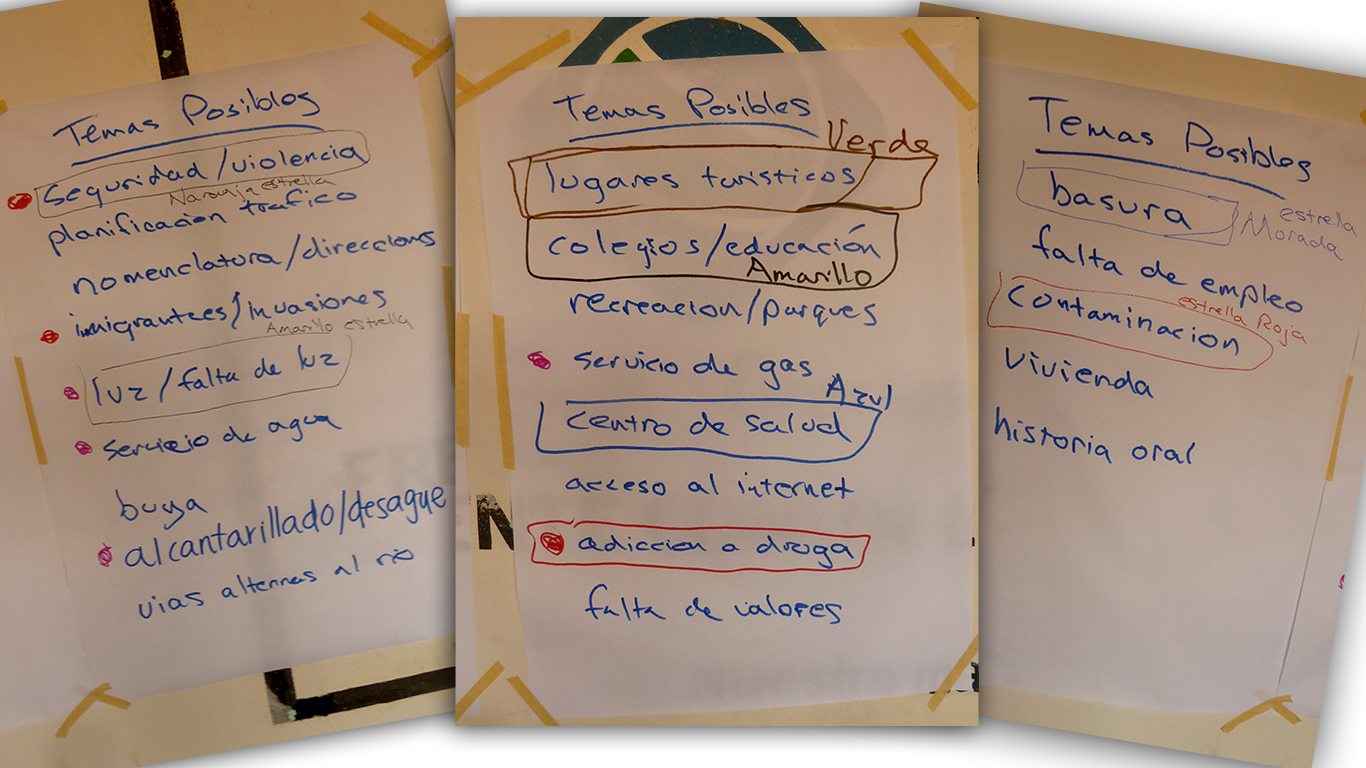 Temas Posibles
seguridad/violencia
Naranja estrella
planificacion trafico
nomenclatura/direccions
inmigrantees/invasiones
Amarillo estrella
luz/falta de luz
servicio de agua
alcantarillado/desague
vias alternas al rio
Temas Posibles
Verde
lugares turisticos
colegios/educación
Amarillo
recreacion/parques
servicio de gas
Azul
centro de salud
acceso al internet
adiccion a droga
falta de valores
Temas Posibles
basura
estrella
Morada
falta de empleo
estrella Roja
contaminacion
vivienda
historia oral